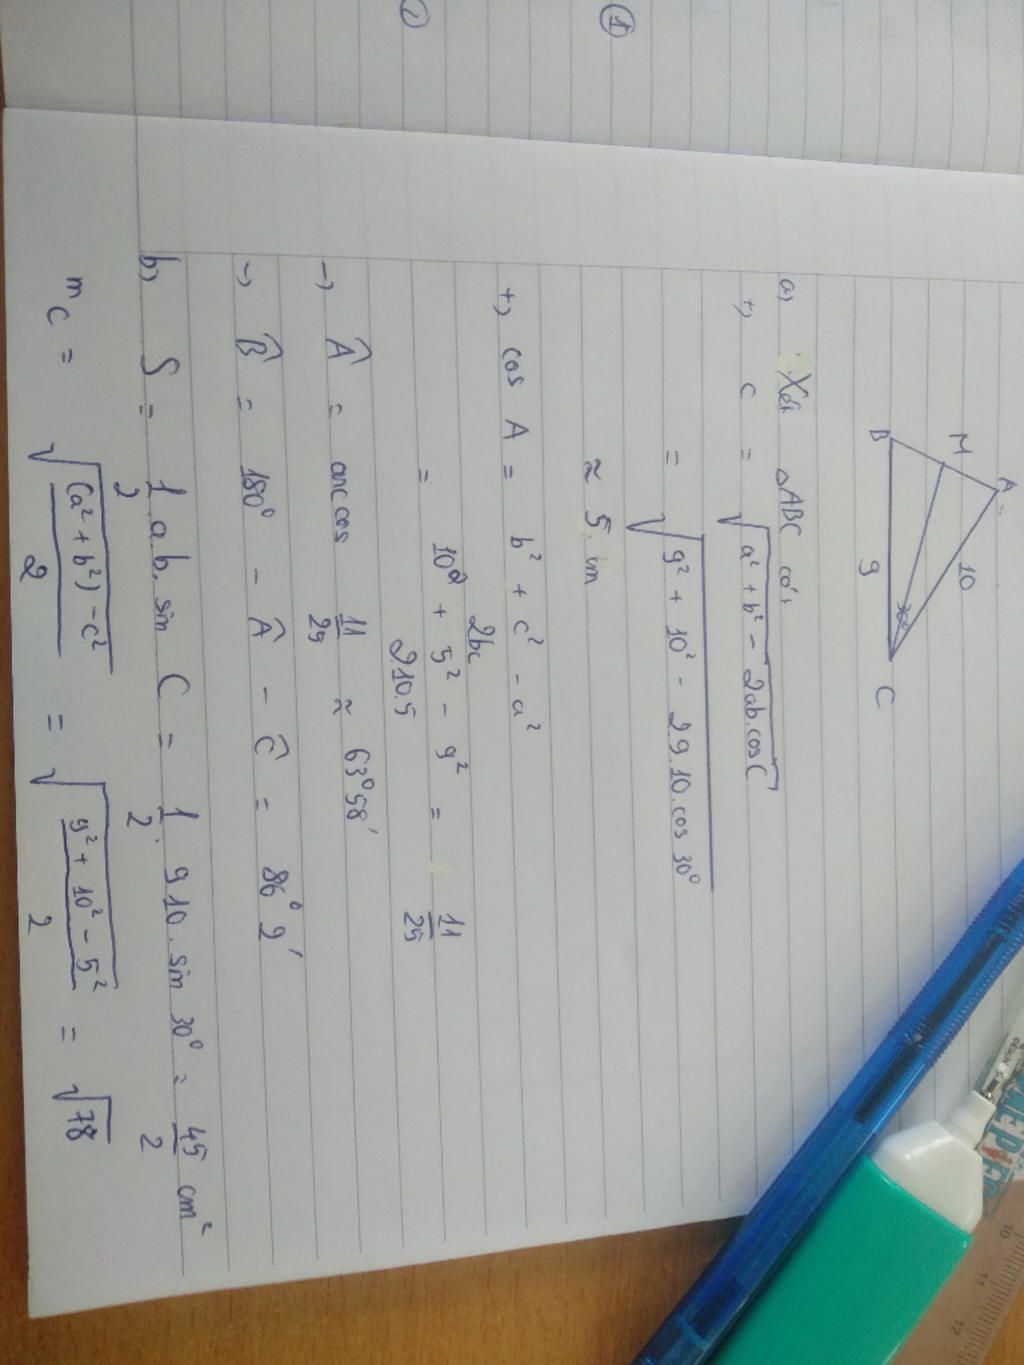 ①
②
A
M
10
30°
B
9
C
a) Xét △ABC có:
+) c = √(a² + b² - 2ab.cosC)
= √(9² + 10² - 2.9.10.cos 30°)
≈ 5 cm
+) cos A = (b² + c² - a²) / 2bc
= (10² + 5² - 9²) / 2.10.5 = 11/25
→) Â = arccos 11/25 ≈ 63°58'
→) B̂ = 180° - Â - Ĉ = 86°2'
b) S = 1/2 a.b.sin C = 1/2 . 9.10.sin 30° = 45/2 cm²
m_C = √(((a² + b²) - c²) / 2) = √((9² + 10² - 5²) / 2) = √78
10
11
12